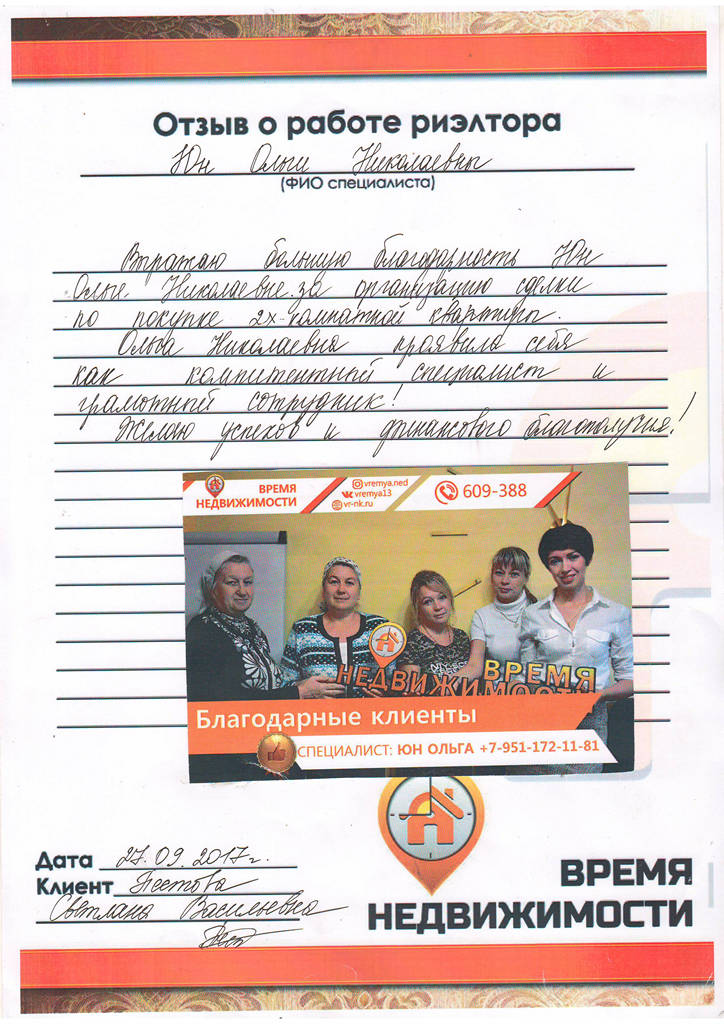 Отзыв о работе риэлтора
Юн Ольги Николаевны
(ФИО специалиста)
Выражаю большую благодарность Юн
Ольге Николаевне за организацию сделки
по покупке 2х-комнатной квартиры.
Ольга Николаевна проявила себя
как компитентный специалист и
грамотный сотрудник!
Желаю успехов и финансового благополучия!
ВРЕМЯ
НЕДВИЖИМОСТИ
vremya.ned
vremya13
vr-nk.ru
609-388
НЕДВИЖИМОСТИ
ВРЕМЯ
Благодарные клиенты
СПЕЦИАЛИСТ: ЮН ОЛЬГА +7-951-172-11-81
Дата 27.09.2017г.
Клиент Пестова
Светлана Васильевна
ВРЕМЯ
НЕДВИЖИМОСТИ